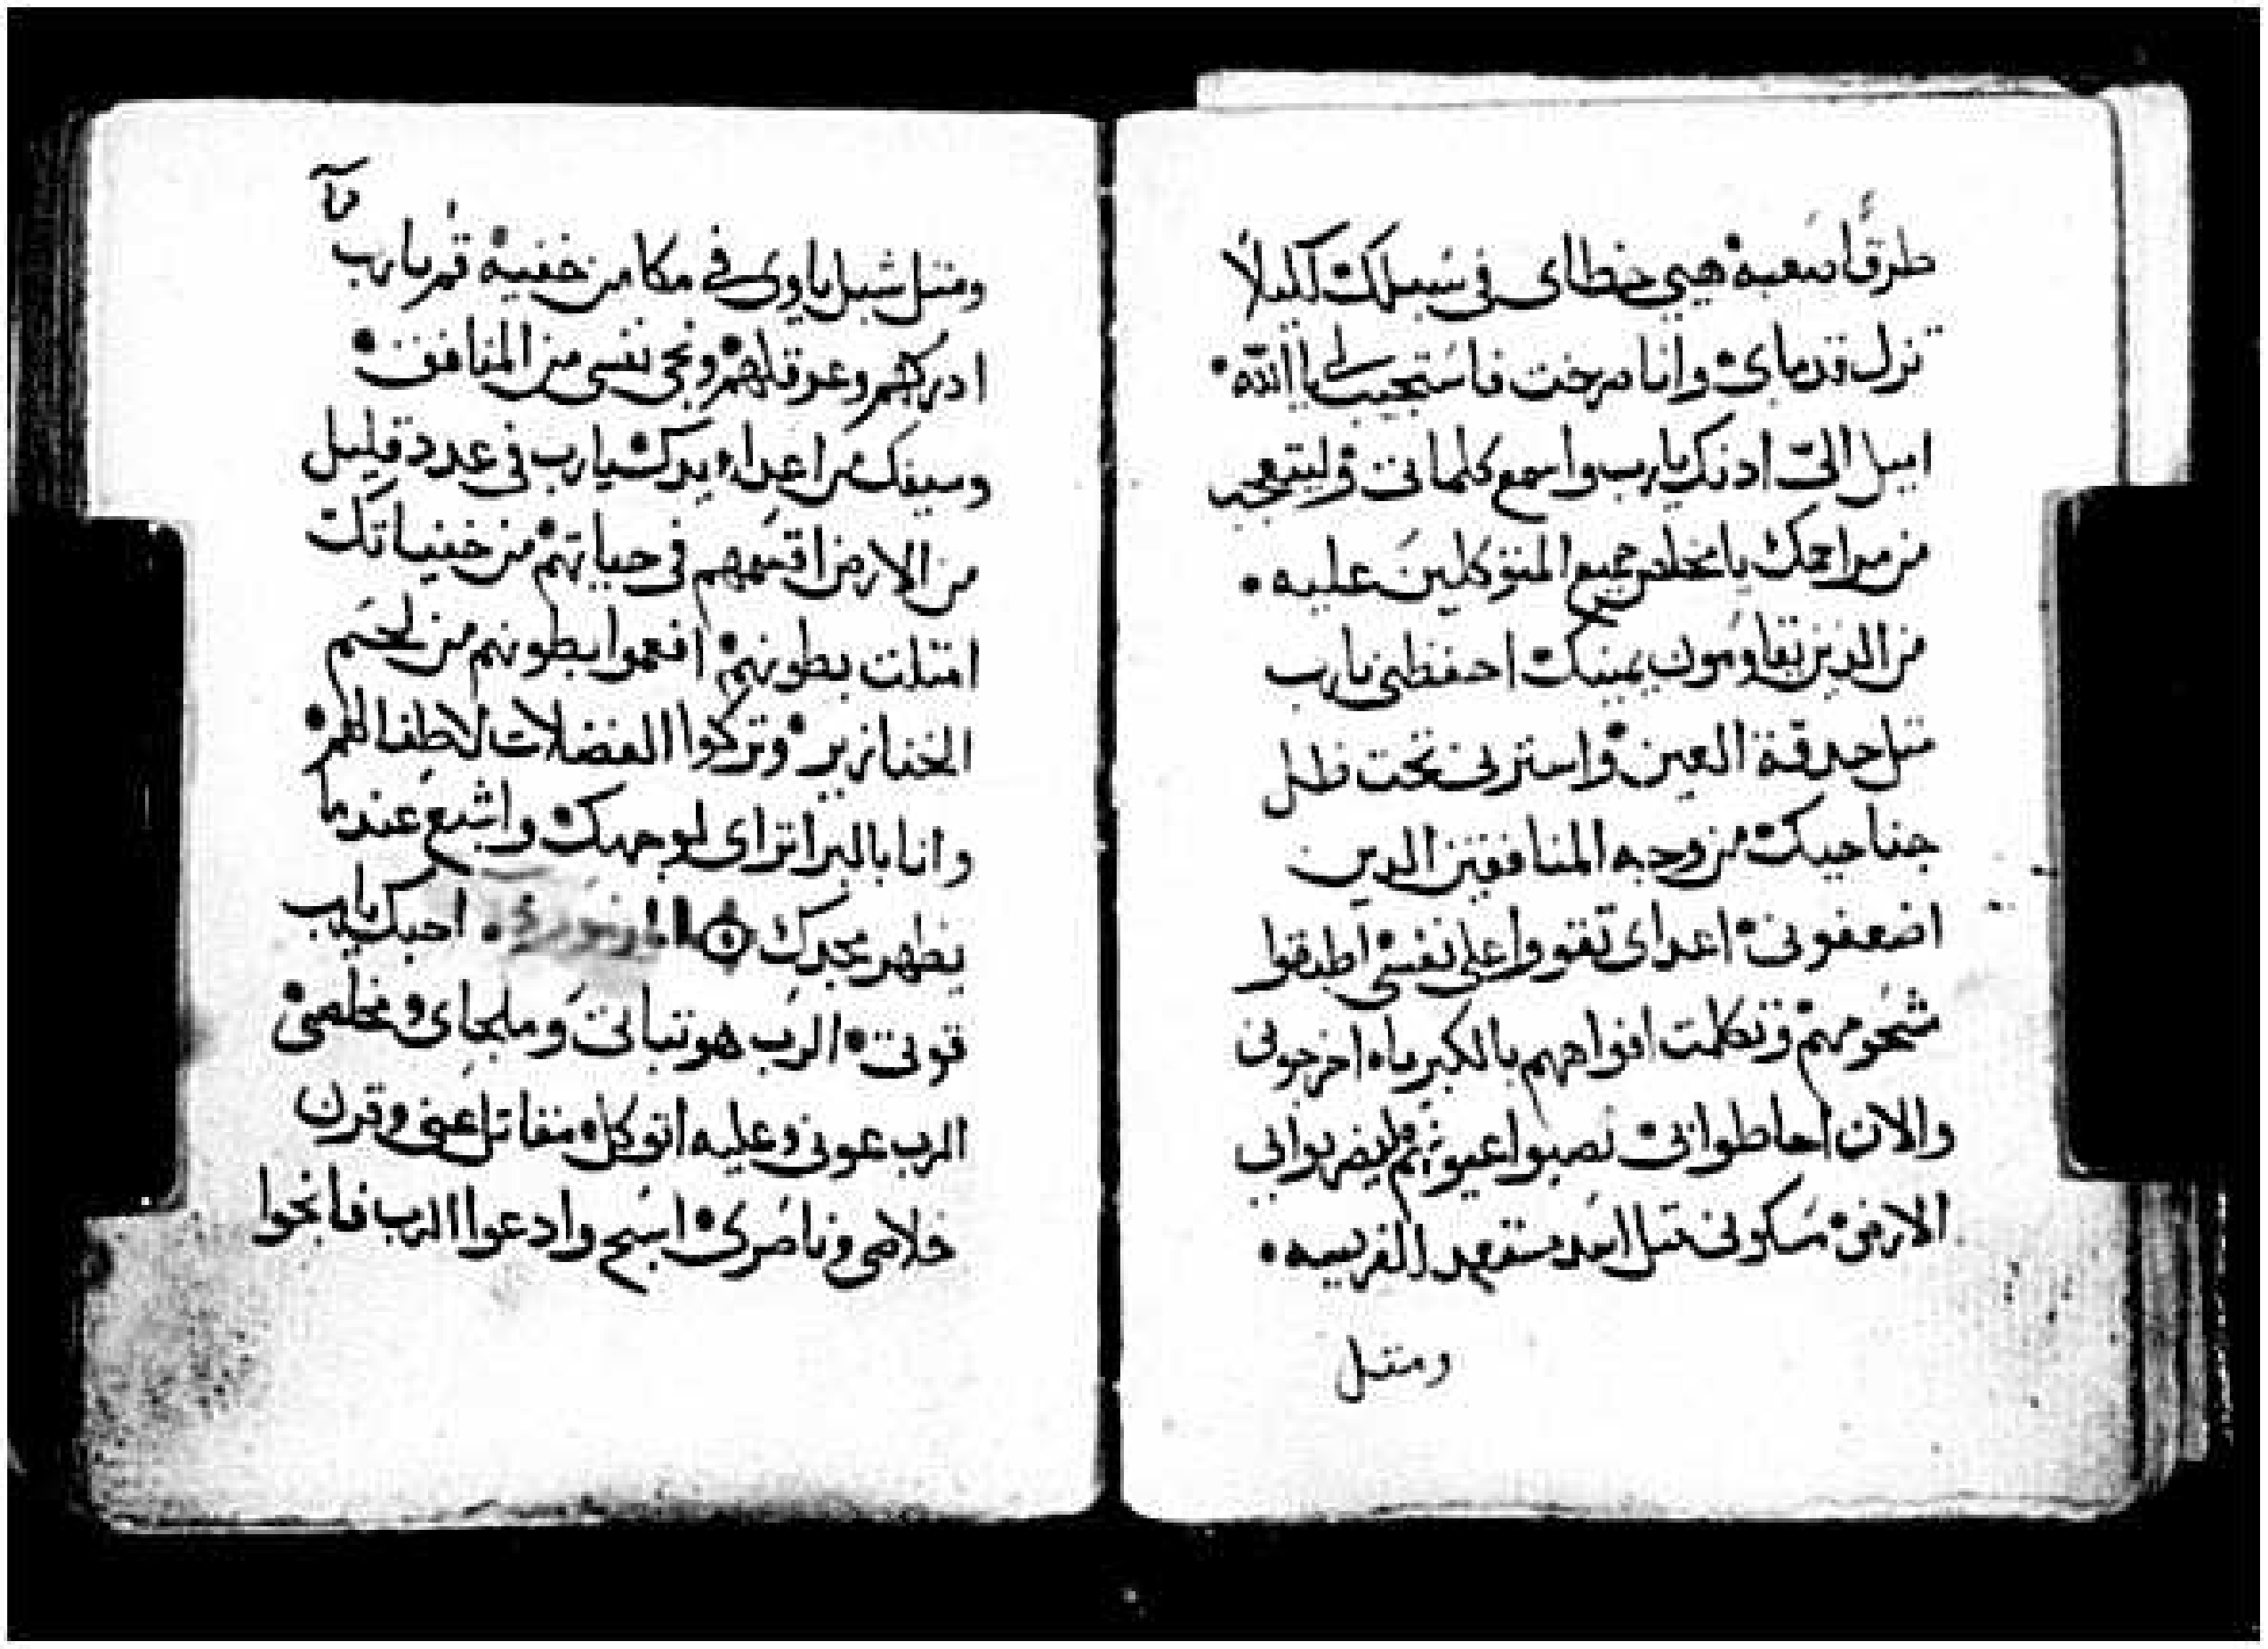 طرقًا صعبة هيي خطاي في سبيلك لكيلا
تزل قدماي وانا صرخت فاستجيب لي يا الله
اميل اليّ ادنك يارب واسمع كلماتي وليتعجب
من مراحمك يا مخلص جميع المتوكلين عليه
من الدين يقاومون يمينك احفظني يارب
مثل حدقة العين واسترني تحت ظل
جناحيك من وجه المنافقين الدين
اضعفوني اعداي تقووا على نفسي اطبقوا
شحومهم وتكلمت افواههم بالكبرياء اخرجوني
والان احاطوا بي نصبوا عيونهم ليضربوا بي
الارض مسكوني مثل اسد مستعد للفريسه
ومثل
ومثل شبل ياوي في مكامن خفية قم يارب
ادركهم وعرقلهم ونجي نفسي من المنافق
وسيفك من اعداء يدك يارب في عدد قليل
من الارض اقسمهم في حياتهم من خفياتك
امتلت بطونهم افعموا بطونهم من لحم
الخنازير وتركوا الفضلات لاطفالهم
وانا بالبر اتراى لوجهك واشبع عندما
يظهر مجدك المزمور احبك يارب
قوتي الرب هو ثباتي وملجاي ومخلصي
الرب عوني وعليه اتوكل مقاتل عني وقرن
خلاصي وناصري اسبح وادعوا الرب فانجوا